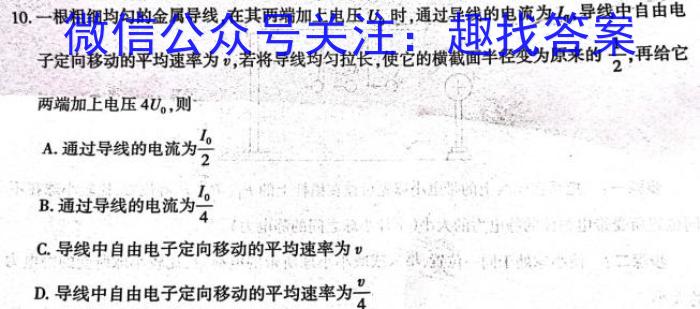 10. 一根粗细均匀的金属导线,在其两端加上电压 U₀ 时,通过导线的电流为 I₀,导线中自由电
微信公众号关注:趣找答案
子定向移动的平均速率为 v,若将导线均匀拉长,使它的横截面半径变为原来的 1/2,再给它
两端加上电压 4U₀,则
A. 通过导线的电流为 I₀/2
B. 通过导线的电流为 I₀/4
C. 导线中自由电子定向移动的平均速率为 v
D. 导线中自由电子定向移动的平均速率为 v/4